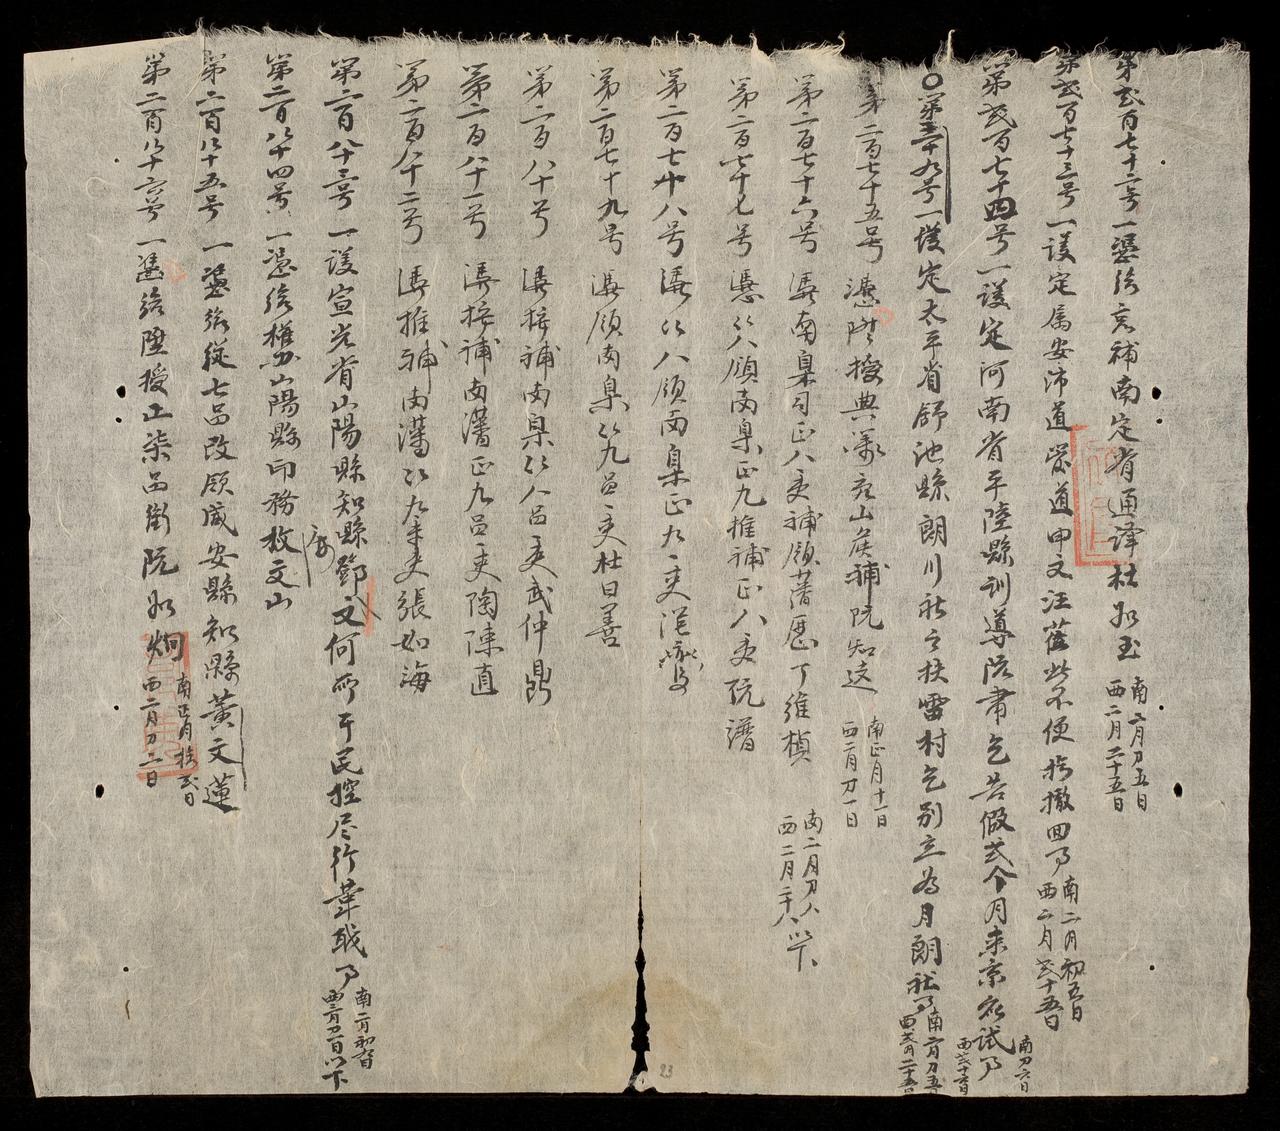 第弍百七十二号一憑給充補南定省通譯杜如玉 南二月初五日 西二月二十五日
第弍百七十三号一謢定屬安沛道 道申文汪 此不便 撤回事 南二月初五日 西二月弍十五日
第弍百七十四号一謢定河南省平陸縣訓導阮肅乞告假弍个月来京 試事 南初六日 西弍十六日
第三十九号一謢定太平省舒池縣朗川社之扶雷村乞别立為月朗社事 南二月初五 西弍月二十五日
第二百七十五号 憑陞授典 山 補阮知 南正月十一日 西二月初一日
第二百七十六号 憑南臬司正八吏補領藩歷丁維楨 南二月初八 西二月二十八以下
第二百七十七号 憑從八領南臬正九推補正八吏阮譜
第二百七十八号 憑從八領南臬正九吏范
第二百七十九号 憑領南臬從九品吏杜日善
第二百八十号 憑接補南臬從八品吏武仲鼎
第二百八十一号 憑接補南藩正九品吏陶陳直
第二百八十二号 憑推補南藩從九品吏張如海
第二百八十三号一謢宣光省山陽縣知縣鄧文何 于民控尽行 事 南二月初六日 西二月 日以下
第二百八十四号一憑給權 山陽縣印務枚文山
第二百八十五号一憑給從七品改領咸安縣知縣黃文蓮
第二百八十六号一憑給陞授正柒品銜阮如炯 南正月拾弍日 西二月初二日
23